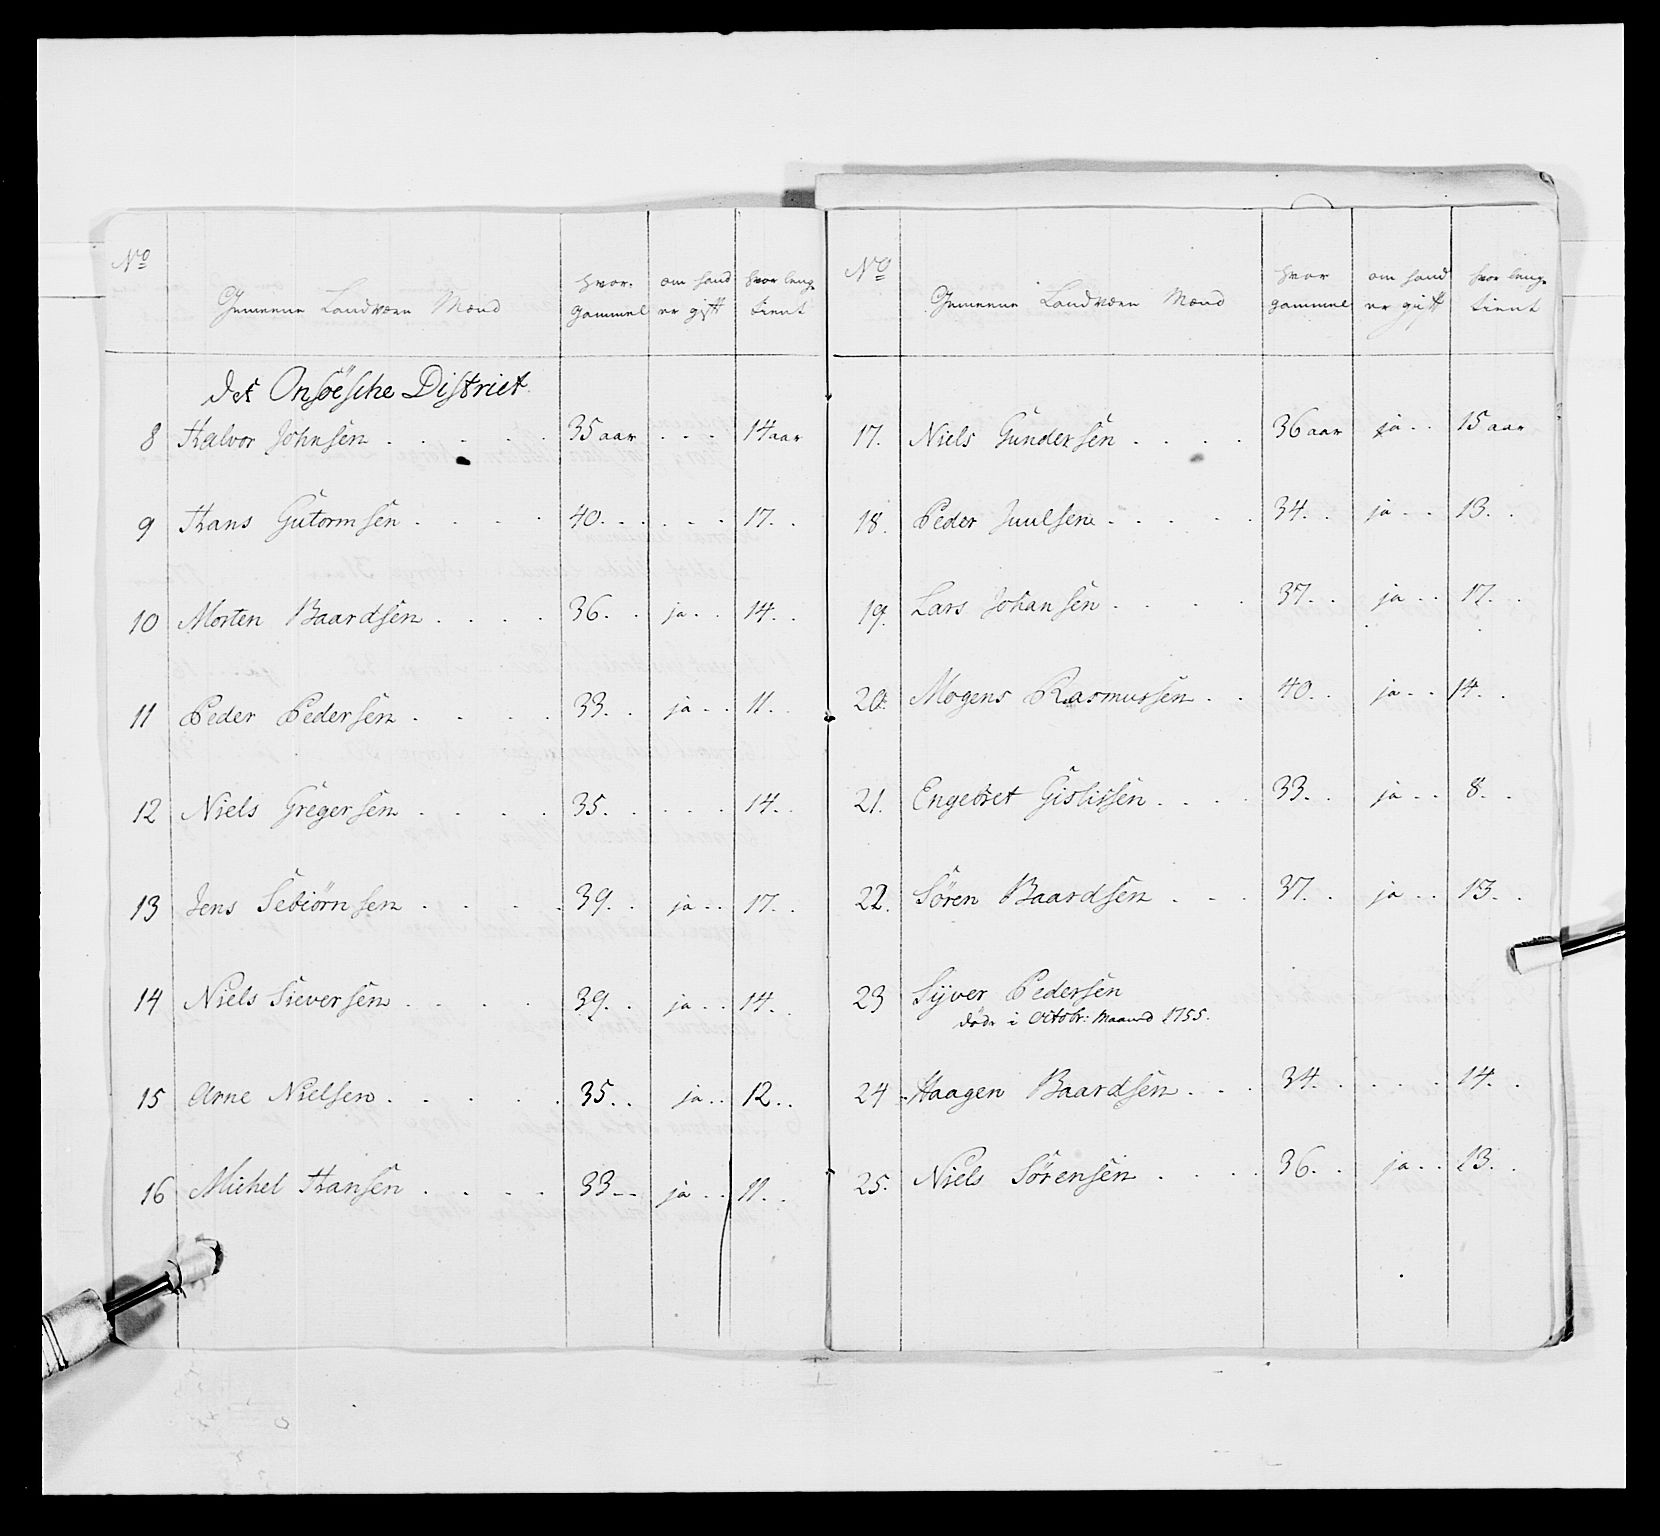 No
Gemeene Landværn Mænd
hvor gammel
om hand er gift
hvor lenge tient
Det Onsöesche District
8 Halvor Johnsen . . . . . 35 aar . . . 14 aar
9 Hans Gutormsen . . . . 40. . . . . . 17. .
10 Morten Baardsen . . . . 36. . ja. . 14. .
11 Peder Pedersen . . . . 33. . ja . . 11. .
12 Niels Gregersen . . . . 35. . . . . 14. .
13 Jens Sebiörnsen . . . . 39. . ja . . 17. .
14 Niels Sieversen . . . . 39. . ja . . 14. .
15 Arne Nielsen . . . . . 35. . ja . . 12. .
16 Michel Hansen . . . . 33 -- ja . . 11. .
No
Gemeene Landværn Mænd
hvor gammel
om hand er gift
hvor lenge tient
17. Niels Gundersen . . . . 36 aar ja . . 15 aar
18. Peder Juulsen . . . . . 34. . ja . . 13. .
19. Lars Johansen . . . . 37. . ja . . 17. .
20. Mogens Rasmussen . . 40. . ja . . 14. .
21. Engebret Gislissen . . . . 33. . ja . . 8. .
22. Sören Baardsen . . . 37. . ja . . 13. .
23 Syver Pedersen
döde i Octobr: Maaned 1755.
24 Haagen Baardsen . . . 34. . . . . 14. .
25. Niels Sörensen . . . . 36. . ja . . 13. .